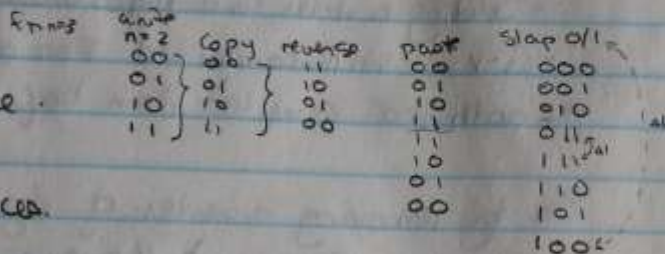 n=3
n=2 copy reverse past slap 0/1
00 00 11 00 000
01 01 10 01 001
10 10 01 10 010
11 11 00 11 011
11 111
10 110
01 101
00 100